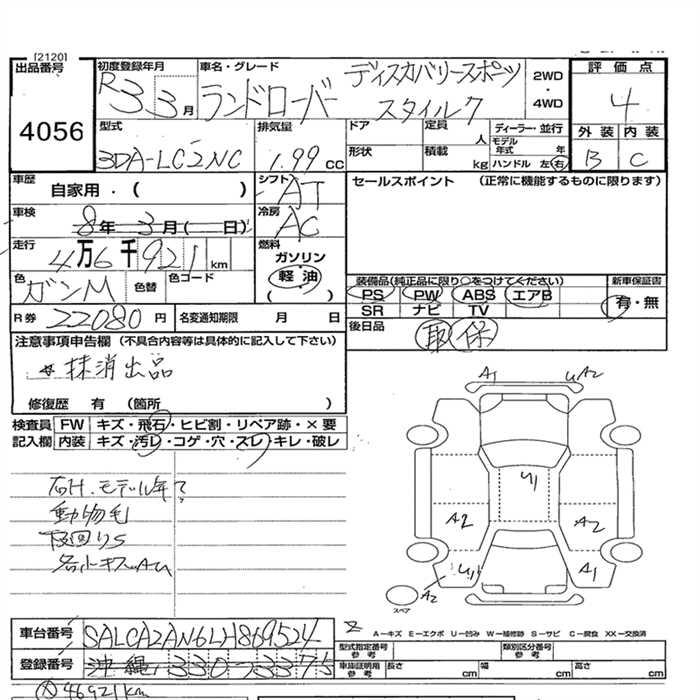 [2120]
出品番号
4056
初度登録年月
R3 3月
車名・グレード
ランドローバー
ディスカバリースポーツ
スタイル7
2WD
・
4WD
評価点
4
外装 内装
B C
型式
3DA-LC2NC
排気量
1.99 CC
ドア
定員 人
形状
積載 kg
ディーラー・並行
モデル年式 年
ハンドル 左・右
車歴
自家用・( )
シフト
AT
セールスポイント (正常に機能するものに限ります)
車検
8年 3月( 日)
冷房
AC
走行
4万6千921km
燃料
ガソリン
・
軽油
( )
色
ガンM
色替
色コード
装備品(純正品に限り○をつけてください)
新車保証書
PS PW ABS エアB
有・無
SR ナビ TV
R券 22080円
名変通知期限 月 日
後日品
取 保
注意事項申告欄 (不具合内容等は具体的に記入して下さい)
抹消出品
修復歴 有 (箇所 )
検査員
記入欄
FW キズ・飛石・ヒビ割・リペア跡・×要
内装 キズ・汚レ・コゲ・穴・スレ・キレ・破レ
右H.モデル年?
動物毛
下回りS
各小キズAU
A1
UA2
U1
A2
A2
U1
A1
A2
スペア
A-キズ E-エクボ U-凹み W-補修跡 S-サビ C-腐食 XX-交換済
車台番号 SALCA2AN6LH869524
登録番号 沖縄 330 3375
型式指定番号 類別区分番号
車庫証明用参考 長さ cm 幅 cm 高さ cm
46921km